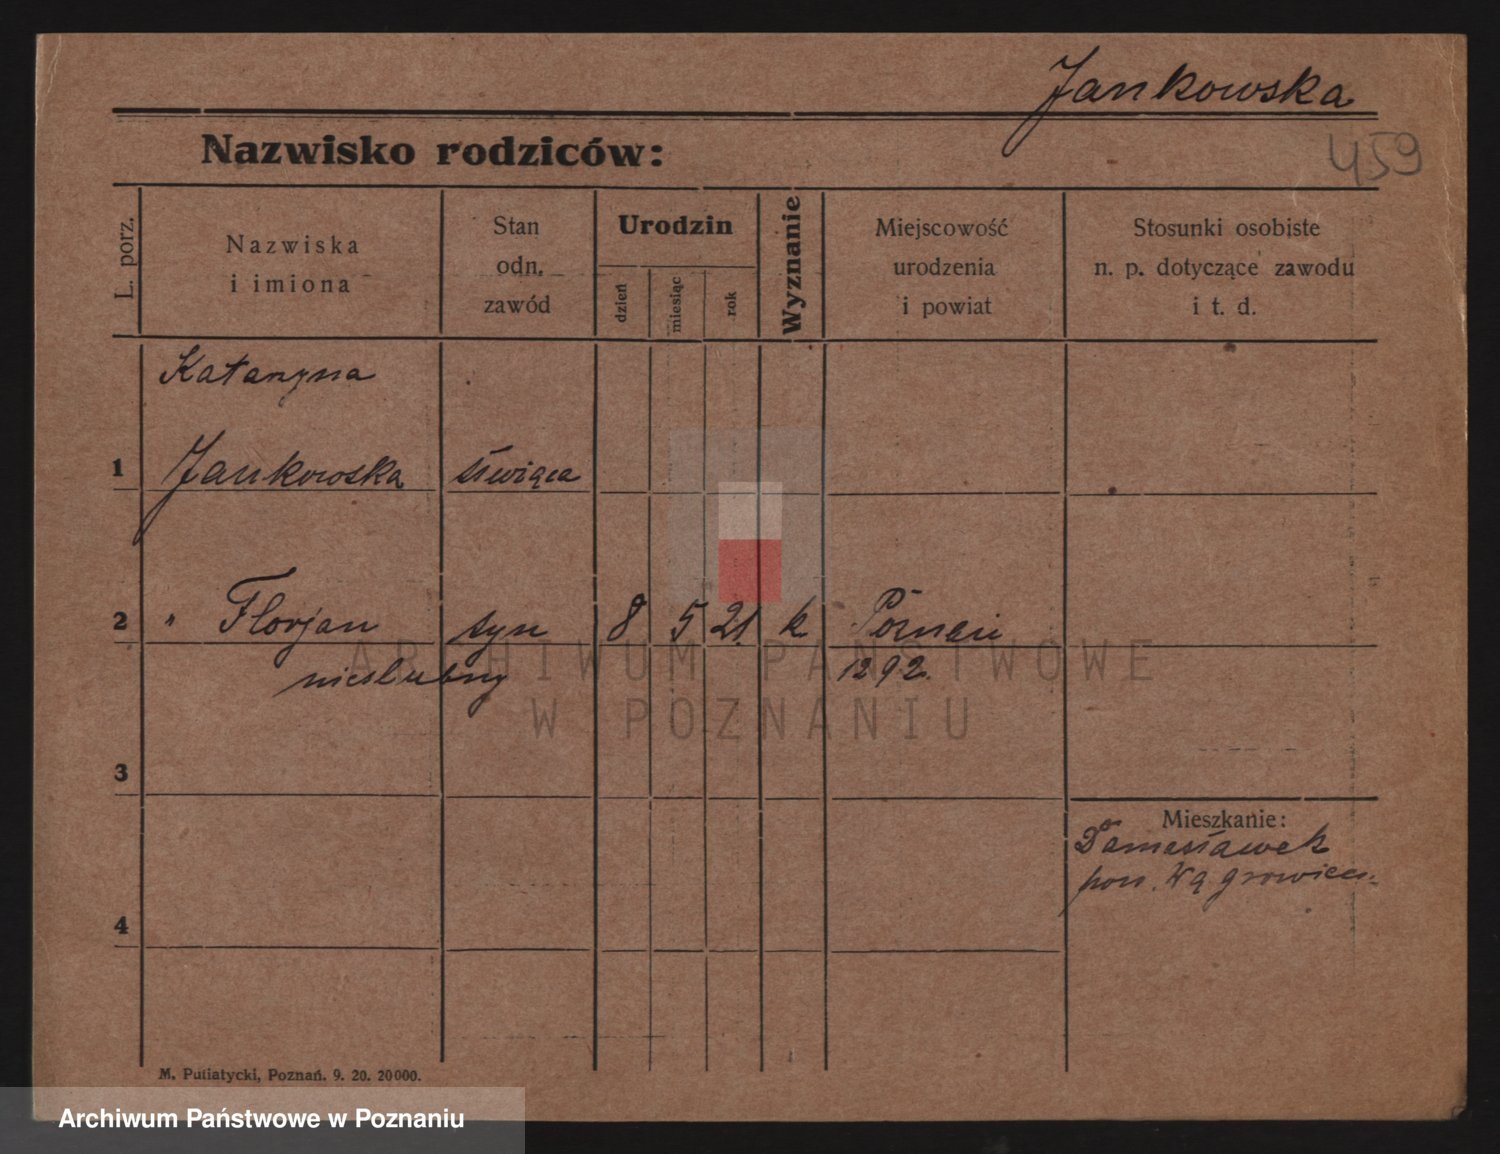 Jankowska
Nazwisko rodziców:
459
L. porz.
Nazwiska
i imiona
Stan
odn.
zawód
Urodzin
dzień
miesiąc
rok
Wyznanie
Miejscowość
urodzenia
i powiat
Stosunki osobiste
n. p. dotyczące zawodu
i t. d.
Katarzyna
1 Jankowska
2 " Florjan syn 8 5 21. k Poznań
nieślubny 1292.
3
Mieszkanie:
Damasławek
pow. Wągrowiec
4
M. Putiatycki, Poznań. 9. 20. 20000.
ARCHIWUM PAŃSTWOWE
W POZNANIU
Archiwum Państwowe w Poznaniu